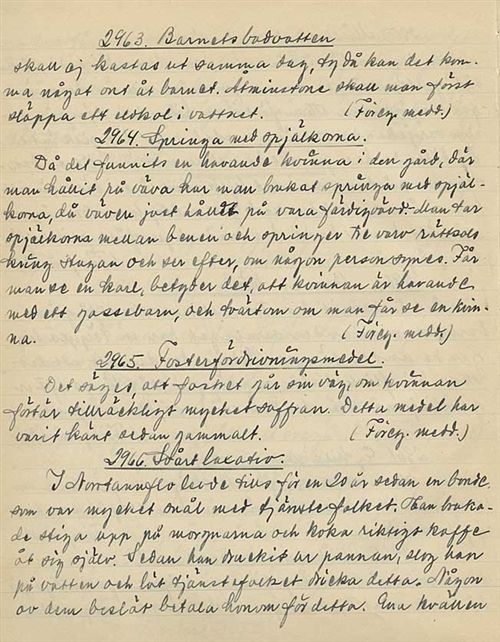 2963. Barnets badvatten
skall ej kastas ut samma dag, ty då kan det kom-
ma något ont åt barnet. Åtminstone skall man först
släppa ett eldkol i vattnet. (Föreg. medd.)
2964. Springa med spjälkorna.
Då det funnits en havande kvinna i den gård, där
man hållit på väva har man brukat springa med spjäl-
korna, då väven just hållit på vara färdigvävd. Man tar
spjälkorna mellan benen och springer tre varv rättsols
kring stugan och ser efter, om någon person synes. Får
man se en karl, betyder det, att kvinnan är havande
med ett gossebarn, och tvärtom om man får se en kvin-
na. (Föreg. medd.)
2965. Fosterfördrivningsmedel.
Det säges, att fostret går sin väg, om kvinnan
förtär tillräckligt mycket saffran. Detta medel har
varit känt sedan gammalt. (Föreg. medd.)
2966. Svårt laxativ.
I levde tills för en 20 år sedan en bonde
som var mycket snål med tjänstefolket. Han bruka-
de stiga upp på morgnarna och koka riktigt kaffe
åt sig själv. Sedan han druckit ur pannan, slog han
på vatten och lät tjänstefolket dricka detta. Någon
av dem beslöt betala honom för detta. Ena kvällen